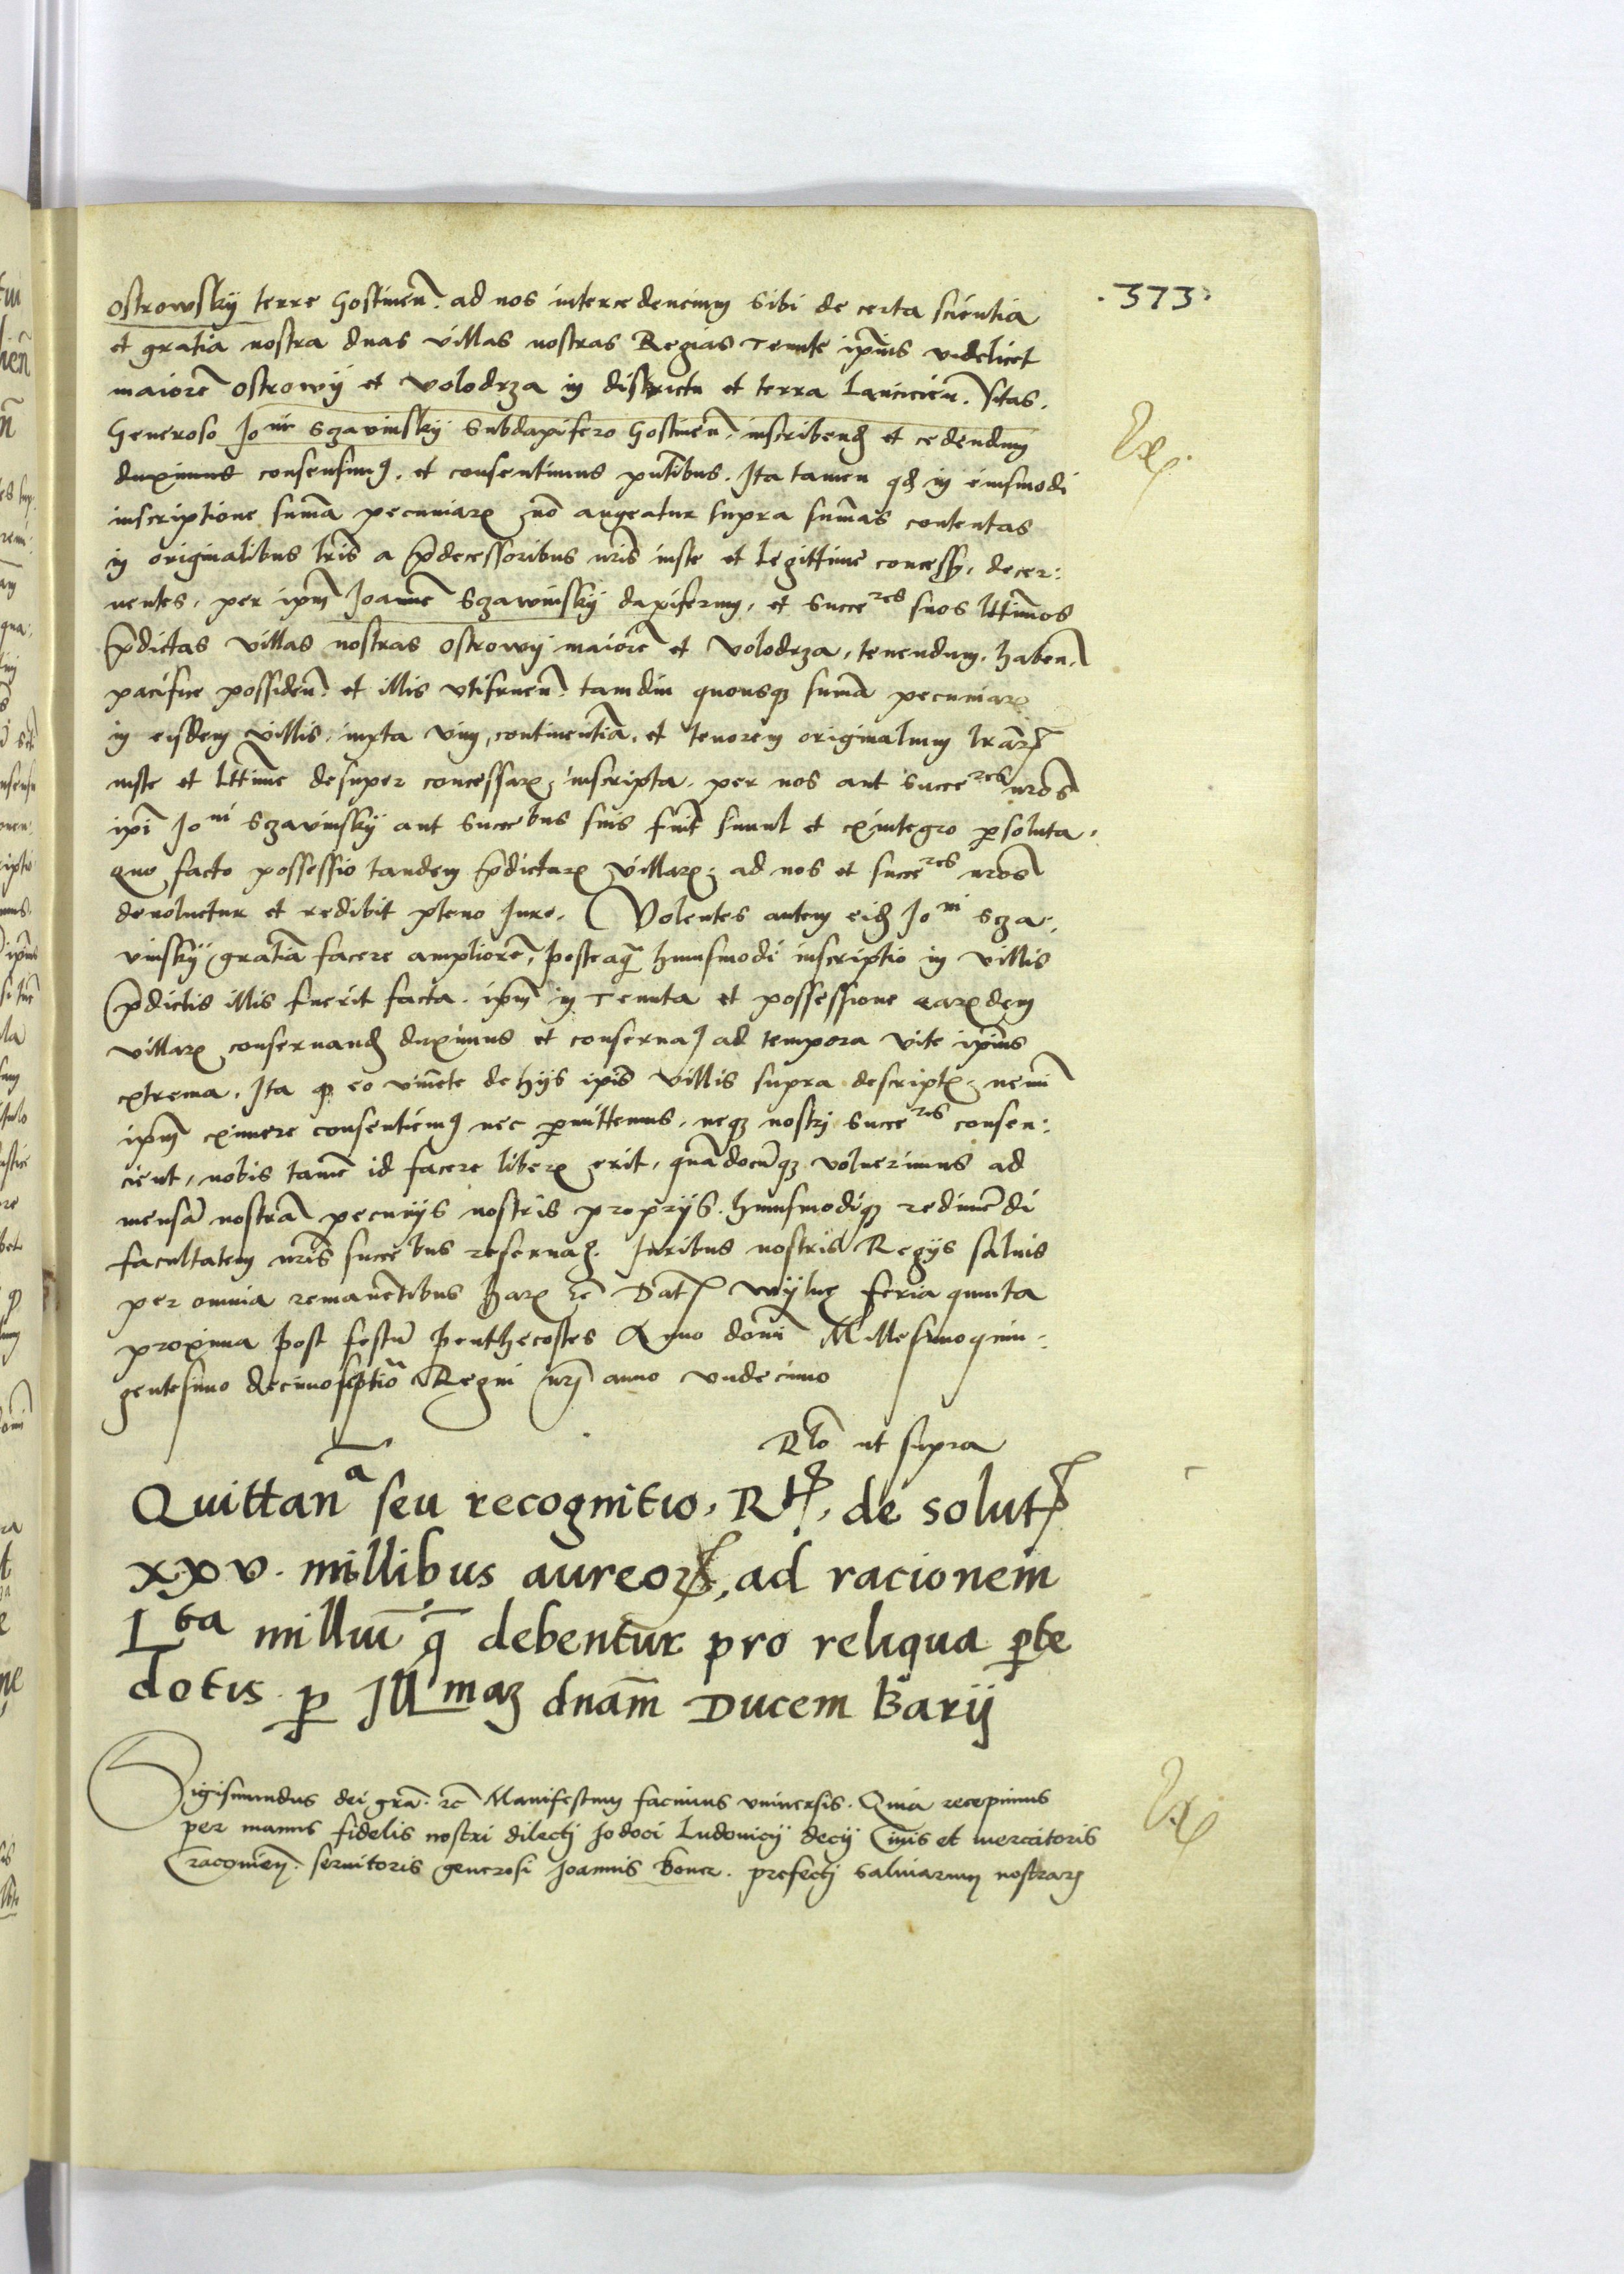 .373.
ostrowskÿ terre Gostinen̄. ad nos intercedencium sibi de certa scientia
et gratia nostra duas villas nostras Regias Tenute ip̄ius videlicet
maiorē ostrowÿ et volodrza in districtu et terra Lancicien̄. sitas.
Generoso Joⁿⁱ Szavinskÿ Subdapifero Gostinen̄. inscribend̄ et cedendum
duximus consensimꝰ. et consentimus pn̄tibus. Ita tamen qd̄ in eiusmodi
inscriptione sum̄a pecuniarꝝ nō augeatur supra sum̄as contentas
in originalibus lr̄is a p̄decessoribus nr̄is iuste et legittime concess̄. decer:
nentes. per ip̄m Joannē Szawinskÿ dapiferum. et Succeʳᵉˢ suos lt̄timos
p̄dictas villas nostras ostrowÿ maiorē et Volodrza. tenendum. haben̄.
pacifice possiden̄. et illis vtifruen̄. tamdiu quousqꝫ sum̄a pecuniarꝝ
in eisdem villis. iuxta vim, continentiā. et tenorem originalium lr̄arꝝ
iuste et lt̄time desuper concessarꝝ inscripta. per nos aut Succeʳᵉˢ nr̄os
ip̄i Joⁿⁱ Szavinskÿ aut Succēbus suis fu̅it simul et exintegro ꝑsoluta.
quo facto possessio tandem p̄dictarꝝ villarꝝ ad nos et succeʳᵉˢ nr̄os
devoluetur et redibit pleno Jure. Volentes autem eid̄ Joⁿⁱ Sza:
vinskÿ gratiā facere ampliorē, posteaq̄ huiusmodi inscriptio in villis
p̄dictis illis fuerit facta. ip̄m in Tenuta et possessione earꝝdem
villarꝝ conservand̄ duximus et conservaꝰ ad tempora vite ip̄ius
extrema. Ita ꝙ eo viue̅te de hijs ip̄is villis supra descriptꝭ nemi̅
ip̄m eximere consentiemꝰ nec ꝑmittemus. neqꝫ nostri Succeʳᵉˢ consen:
cient, nobis tamē id facere liberꝝ erit, quādocūqꝫ voluerimus ad
mensā nostrā pecunijs nostris proprijs. huiusmodiqꝫ redimēdi
facultatem nr̄is succēbus reservaꝰ. Juribus nostris Regijs salvis
per omnia remanētibus harꝝ rc̄ Datꝭ Wÿlne feria quinta
proxima post festū penthecostes Anno domī Millesimoquin:
gentesimo decimoseptīo Regni nr̄i anno vndecimo
Rlō ut supra
Quittanᵃ seu recognitio. Rꝭ. de solutꝭ
xxv. millibus aureorꝝ, ad racionem
Lᵗᵃ milliū q̄ debentur pro reliqua ꝑte
dotis ꝑ Illᵐᵃꝫ dnām Ducem Barij
Sigismundus dei grā. rc̄ Manifestum facimus vniuersis. Quia recepimus
per manus fidelis nostri dilecti Jodoci Ludovicÿ decÿ Civis et mercatoris
Cracovien̄. servitoris generosi Joannis boner. prefecti salinarum nostrarꝝ